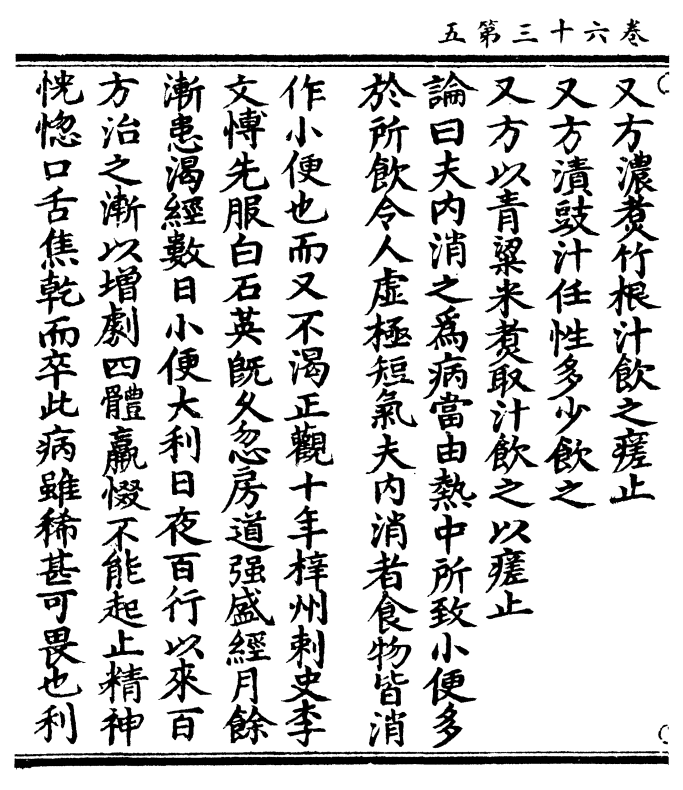 卷六十三第五
又方濃煑竹根汁飲之瘥止
又方漬豉汁任性多少飲之
又方以青粱米煑取汁飲之以瘥止
論曰夫内消之爲病當由熱中所致小便多
於所飲令人虛極短氣夫内消者食物皆消
作小便也而又不渴正觀十年梓州刺史李
文博先服白石英旣久忽房道强盛經月餘
漸患渴經數日小便大利日夜百行以來百
方治之漸以增劇四體羸惙不能起止精神
恍惚口舌焦乾而卒此病雖稀甚可畏也利